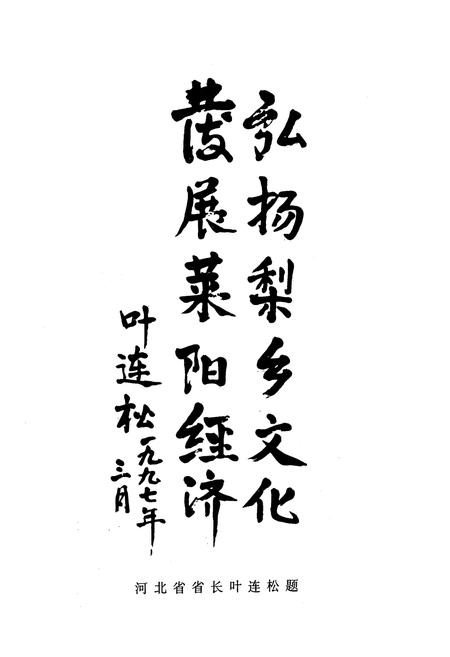 弘扬梨乡文化
發展莱阳经济
叶连松
一九九七年
三月
河北省省长叶连松题